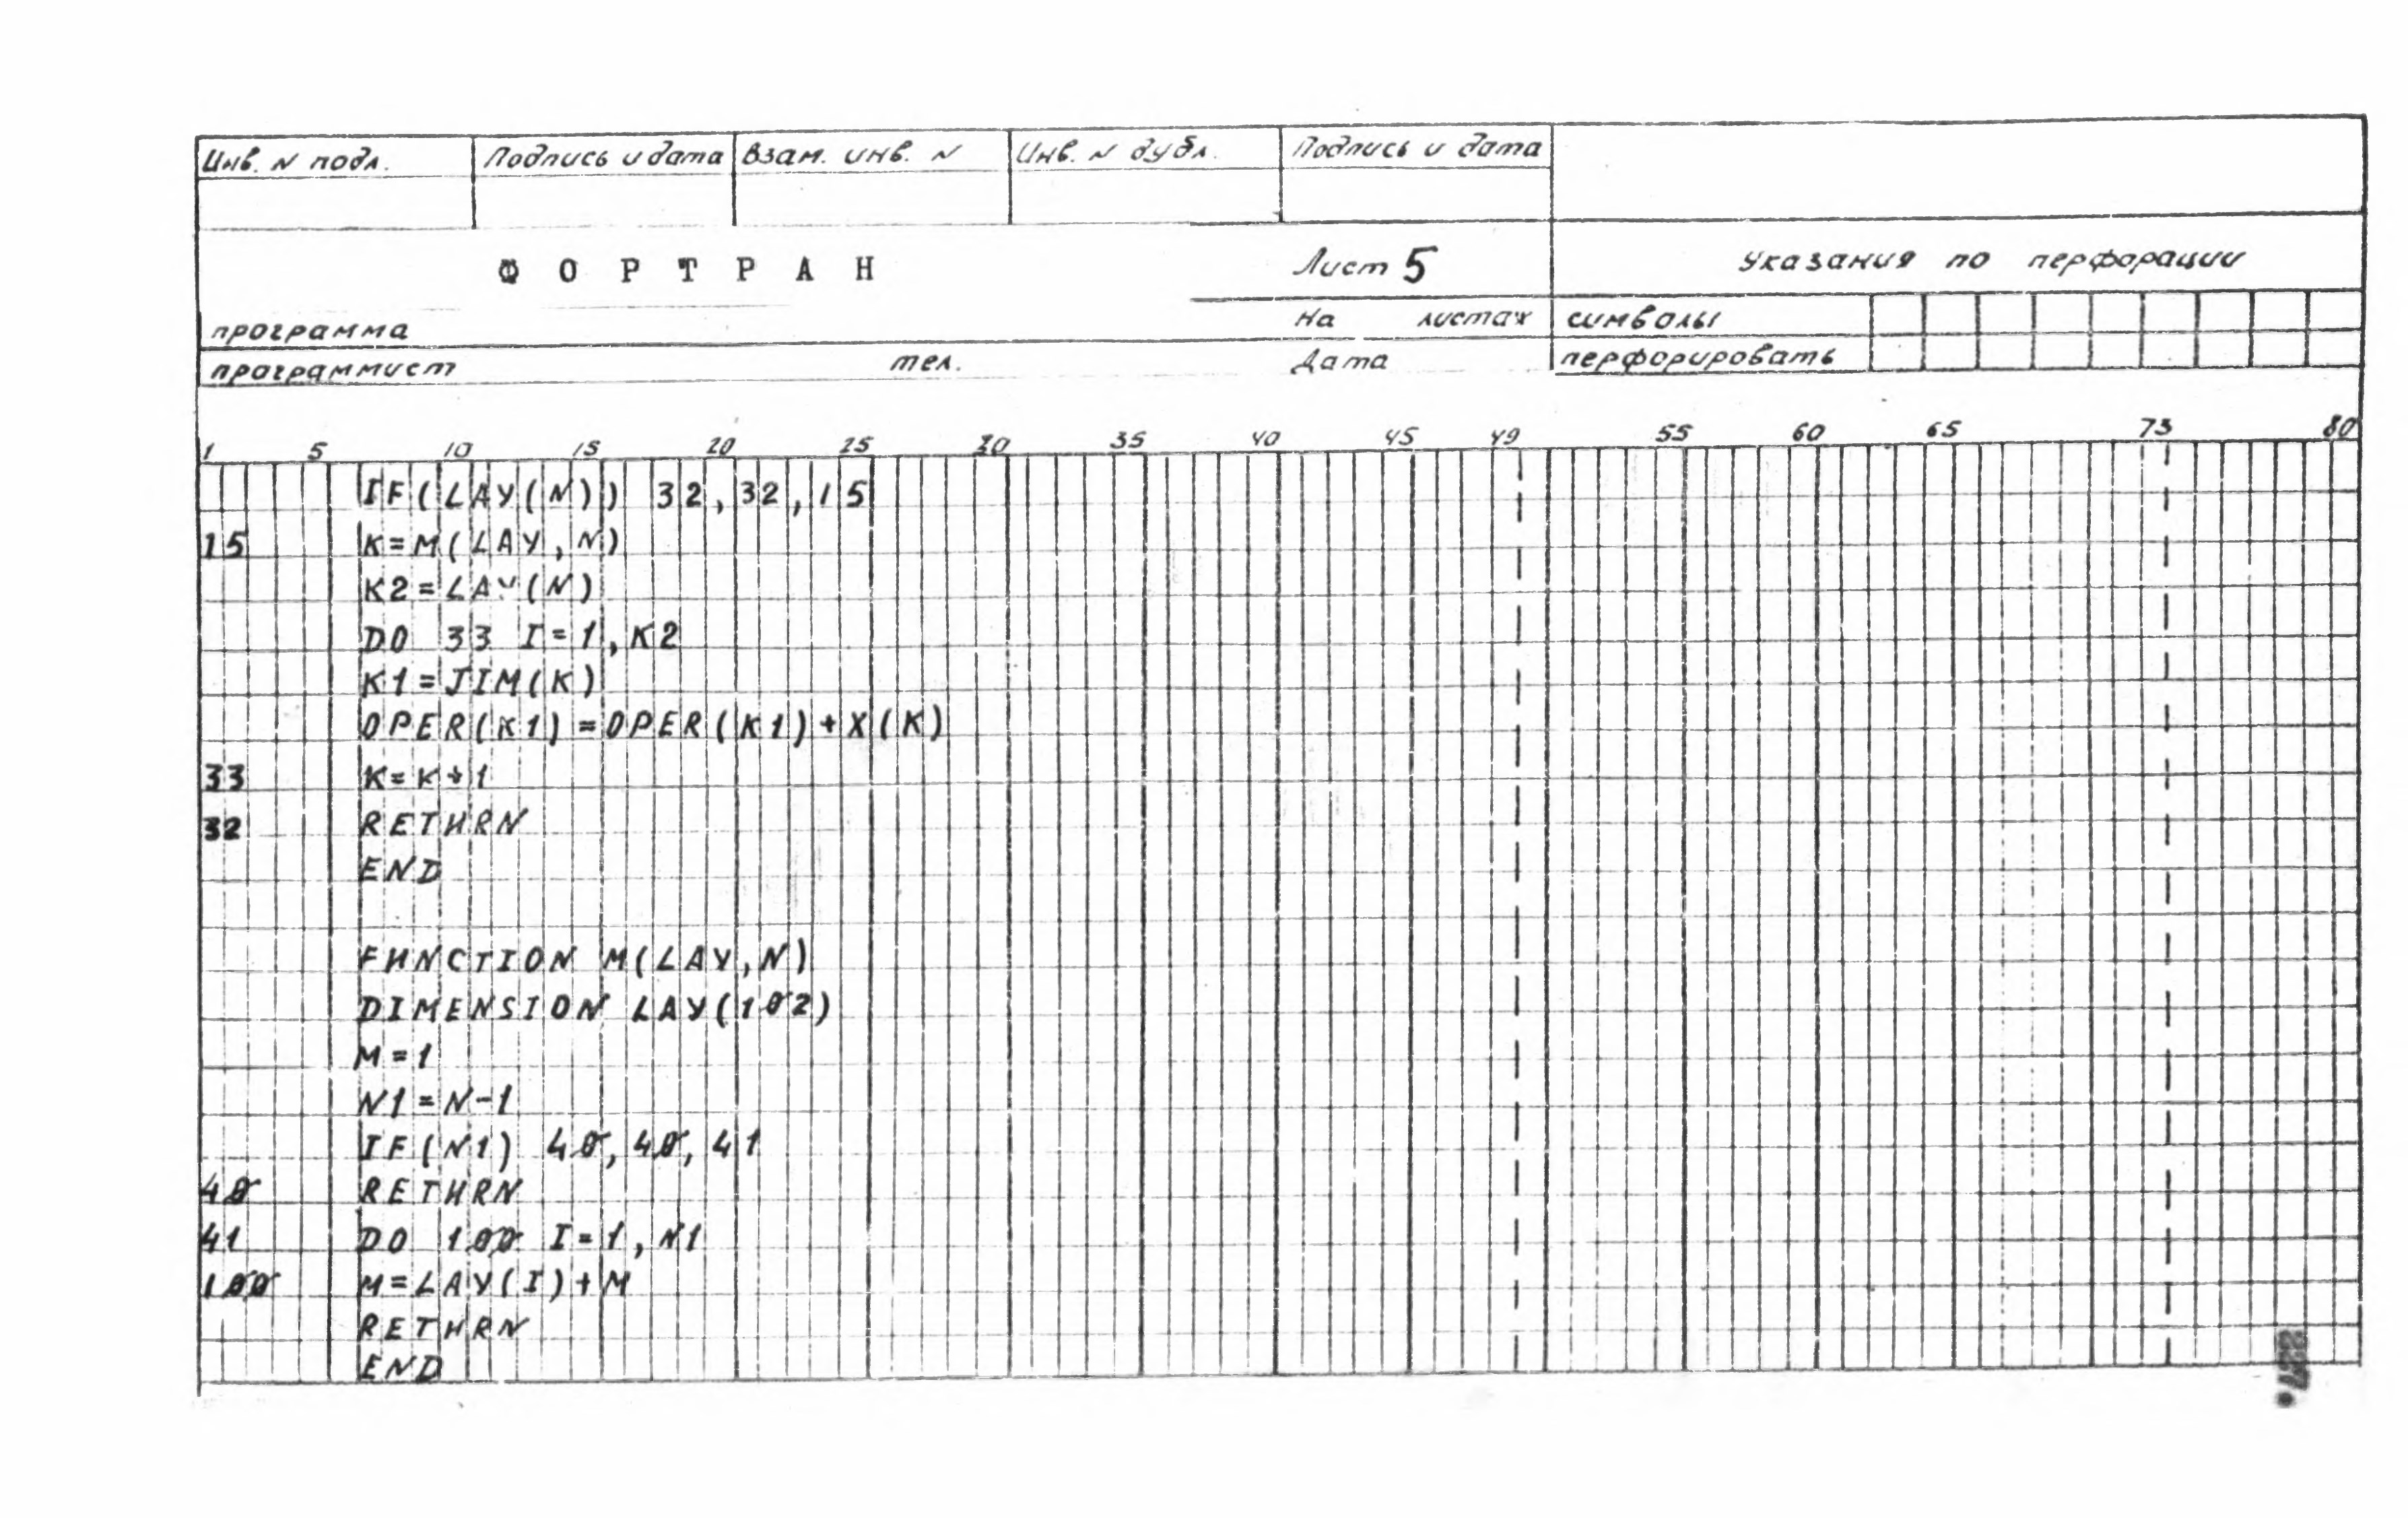 Инв. N подл. Подпись и дата Взам. инв. N Инв. N дубл. Подпись и дата
ФОРТРАН Лист 5 Указания по перфорации
программа На листах символы
программист тел. Дата перфорировать
1 5 10 15 20 25 30 35 40 45 49 55 60 65 73 80
IF(LAY(N)) 32,32,15
15 K=M(LAY,N)
K2=LAY(N)
DO 33 I=1,K2
K1=JIM(K)
OPER(K1)=OPER(K1)+X(K)
33 K=K+1
32 RETHRN
END
FHNCTION M(LAY,N)
DIMENSION LAY(102)
M=1
N1=N-1
IF(N1) 40,40,41
40 RETHRN
41 DO 100 I=1,N1
100 M=LAY(I)+M
RETHRN
END